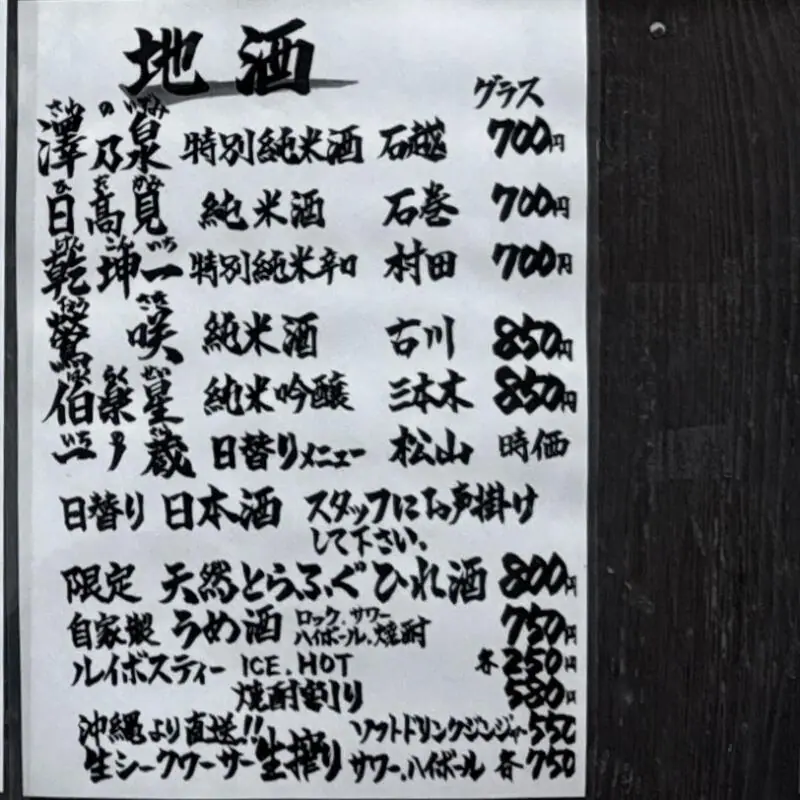 地酒
グラス
さわ の いずみ
澤乃泉 特別純米酒 石越 700円
ひ た かみ
日高見 純米酒 石巻 700円
けん こん いち
乾坤一 特別純米辛口 村田 700円
さき
鶯咲 純米酒 古川 850円
はく らく せい
伯楽星 純米吟醸 三本木 850円
いち
一ノ蔵 日替りメニュー 松山 時価
日替り 日本酒 スタッフにお声掛け
して下さい。
限定 天然とらふぐひれ酒 800円
自家製 うめ酒 ロック、サワー
ハイボール、焼酎 750円
ルイボスティー ICE、HOT 各250円
焼酎割り 580円
沖縄より直送!! ソフトドリンクジンジャー550
生シークワーサー生搾り サワー、ハイボール 各750